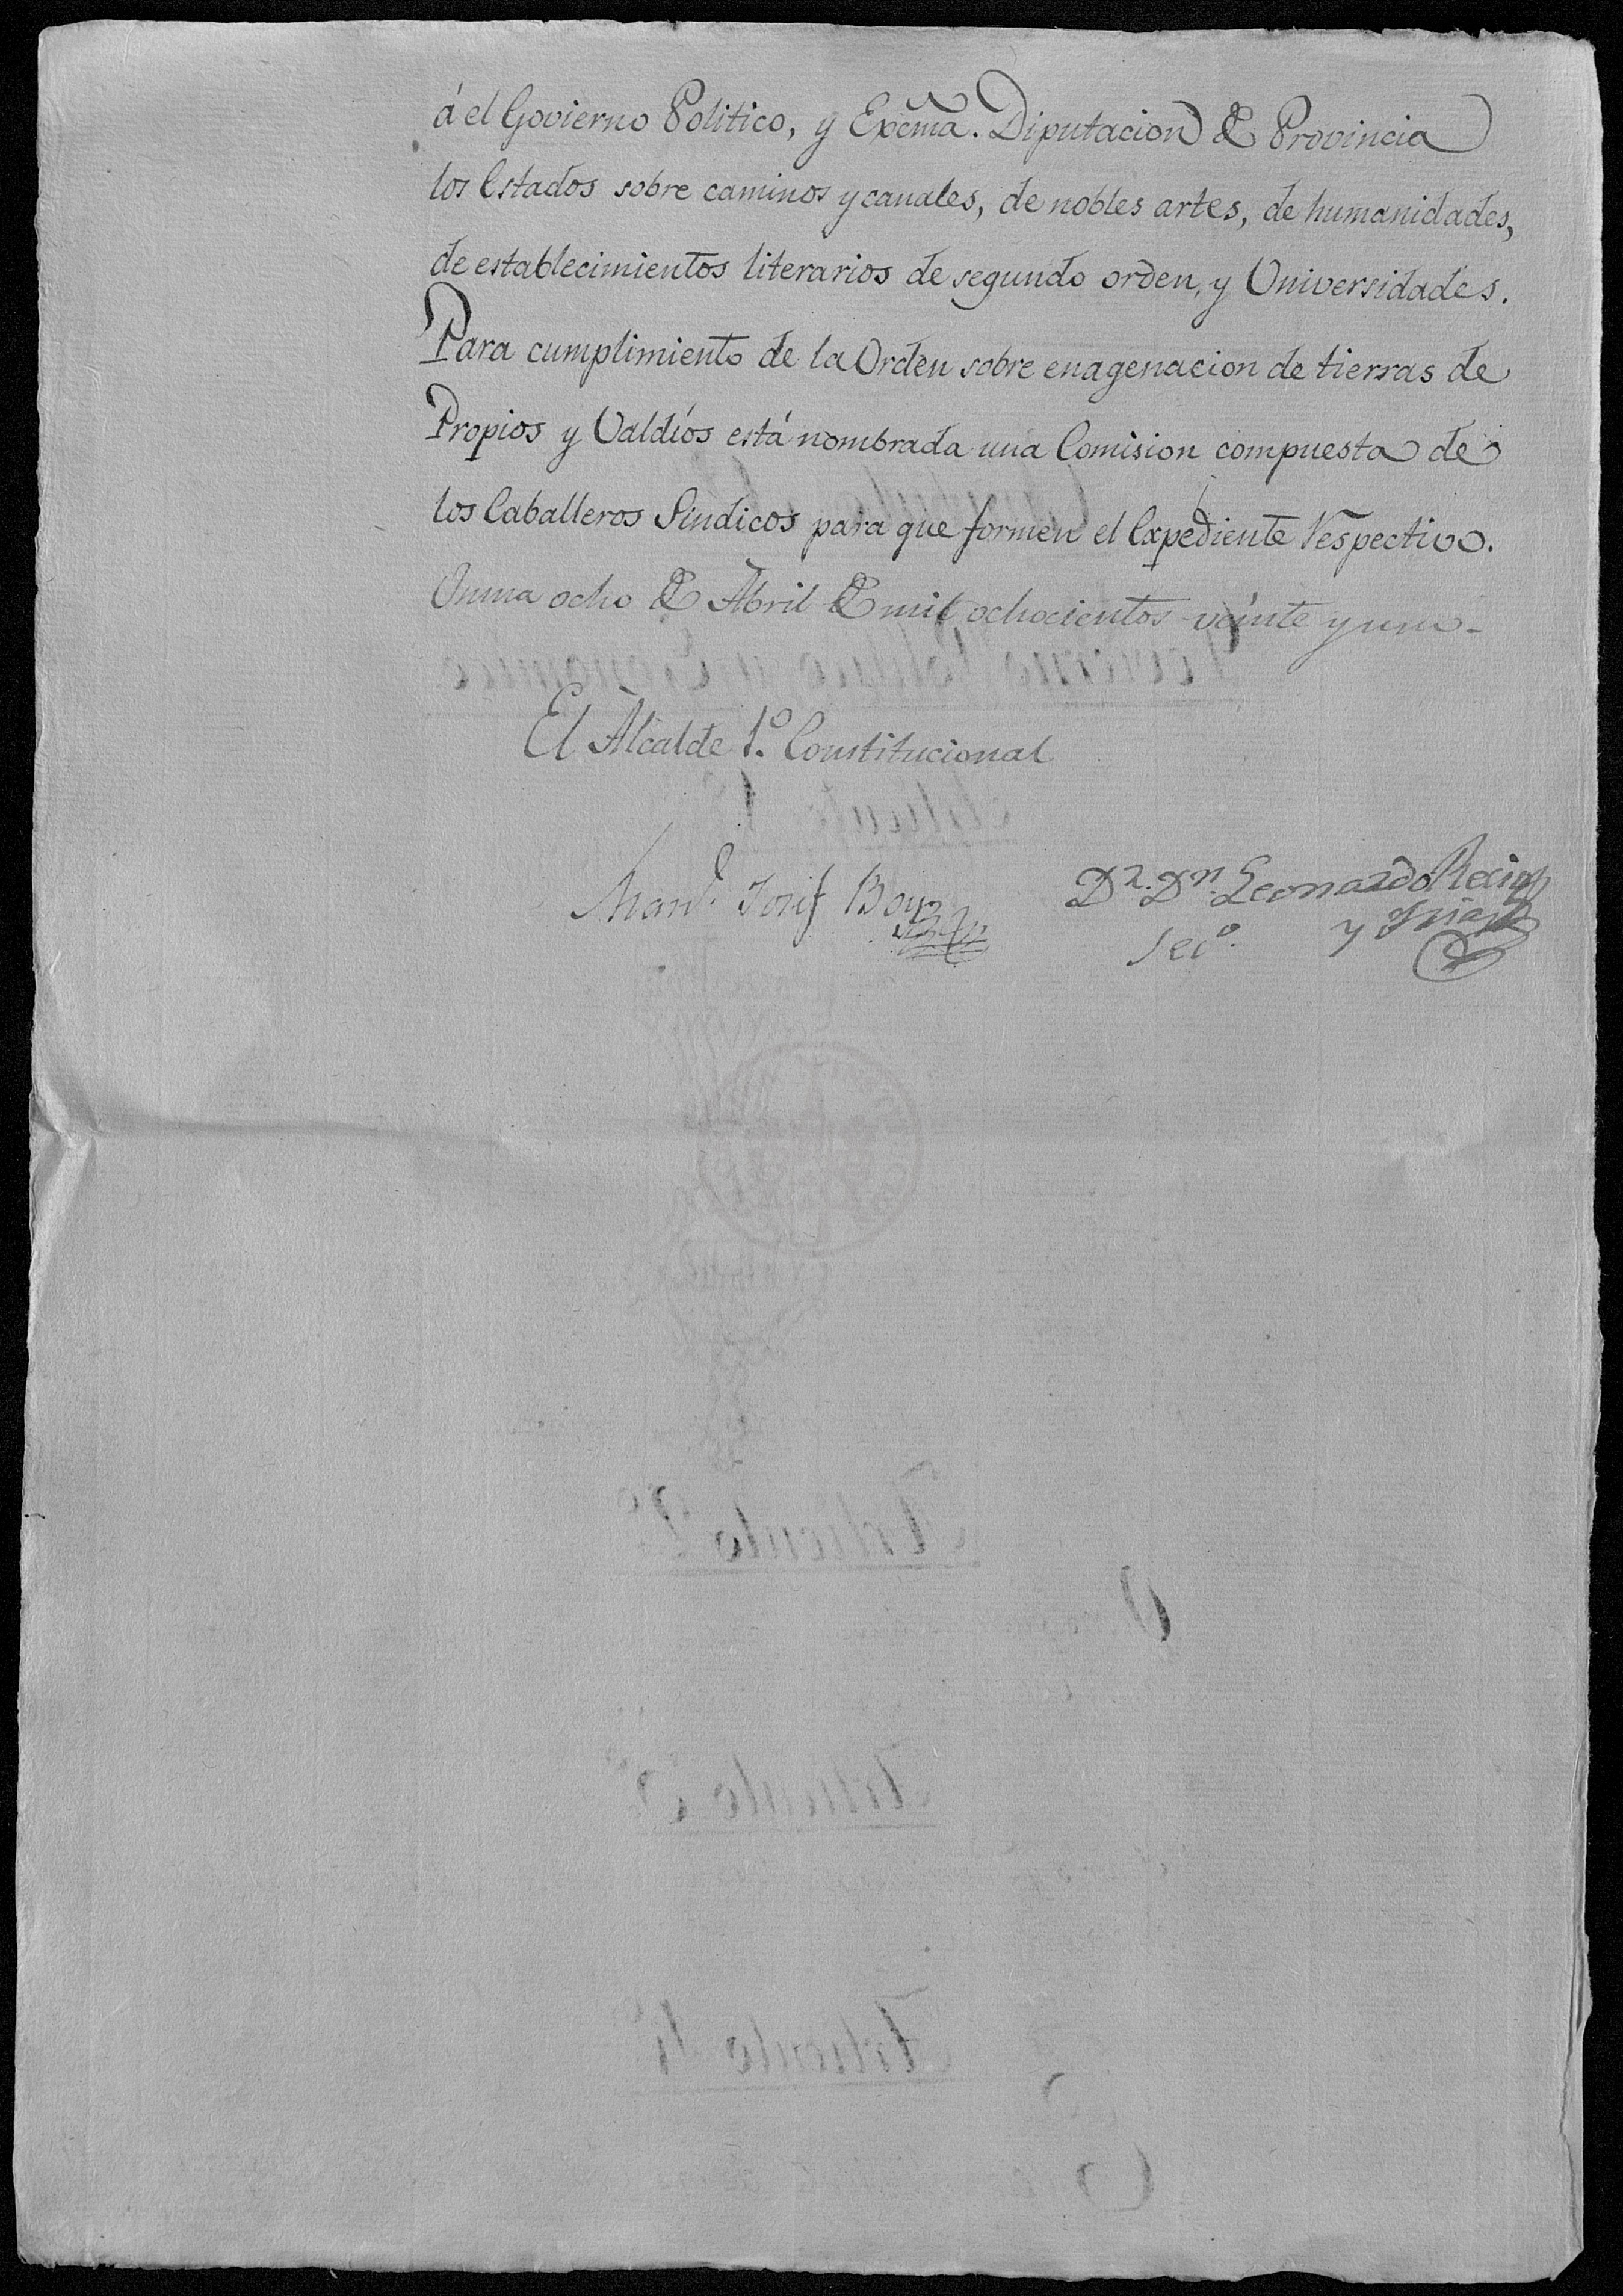 á el Govierno Politico, y Excma. Diputacion de Provincia
los Estados sobre caminos y canales, de nobles artes, de humanidades,
de establecimientos literarios de segundo orden, y Universidades.
Para cumplimiento de la Orden sobre enagenacion de tierras de
Propios y Valdíos está nombrada una Comision compuesta de
los Caballeros Sindicos para que formen el Expediente respectivo.
Osuna ocho de Abril de mil ochocientos veinte y uno-
El Alcalde 1.º Constitucional
Man.l Josef Dr. Dn. Leonardo Recio
Sec.º y